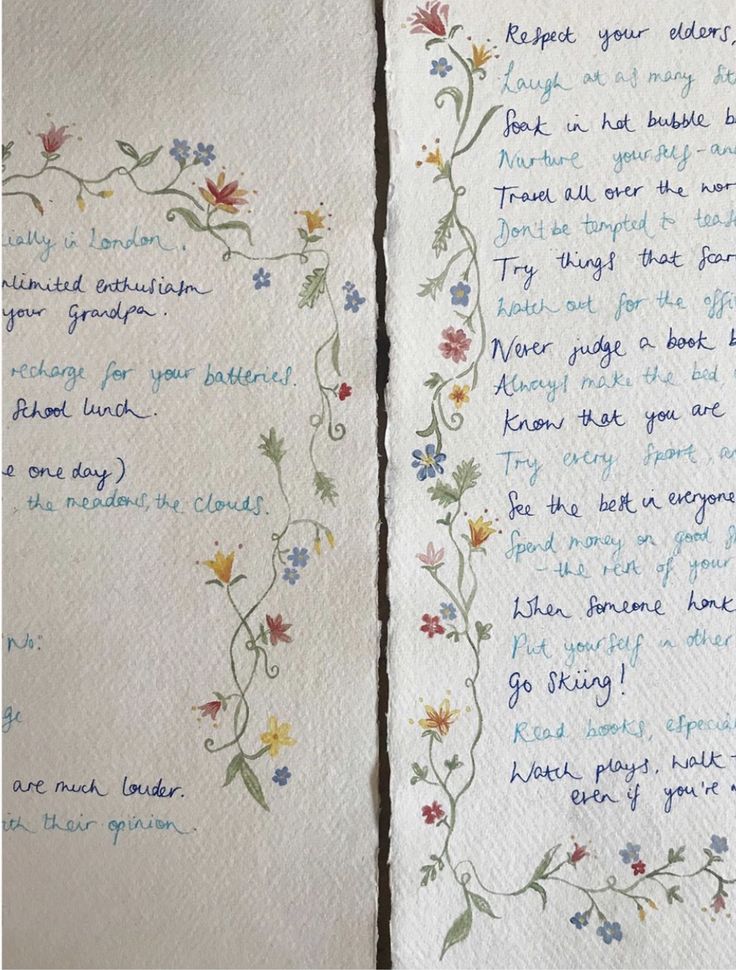 ially in London.
nlimited enthusiasm
your Grandpa.
recharge for your batteries.
School lunch.
e one day)
, the meadows, the clouds.
No:
ge
are much louder.
ith their opinion.
Respect your elders,
Laugh at as many
Soak in hot bubble b
Nurture yourself - an
Travel all over the wor
Don't be tempted to
Try things that scar
Watch out for the offi
Never judge a book b
Always make the bed,
Know that you are
Try every sport, an
See the best in everyone
Spend money on good
- the rest of your
When someone honk
Put yourself in other
Go Skiing!
Read books, especial
Watch plays, walk
even if you're